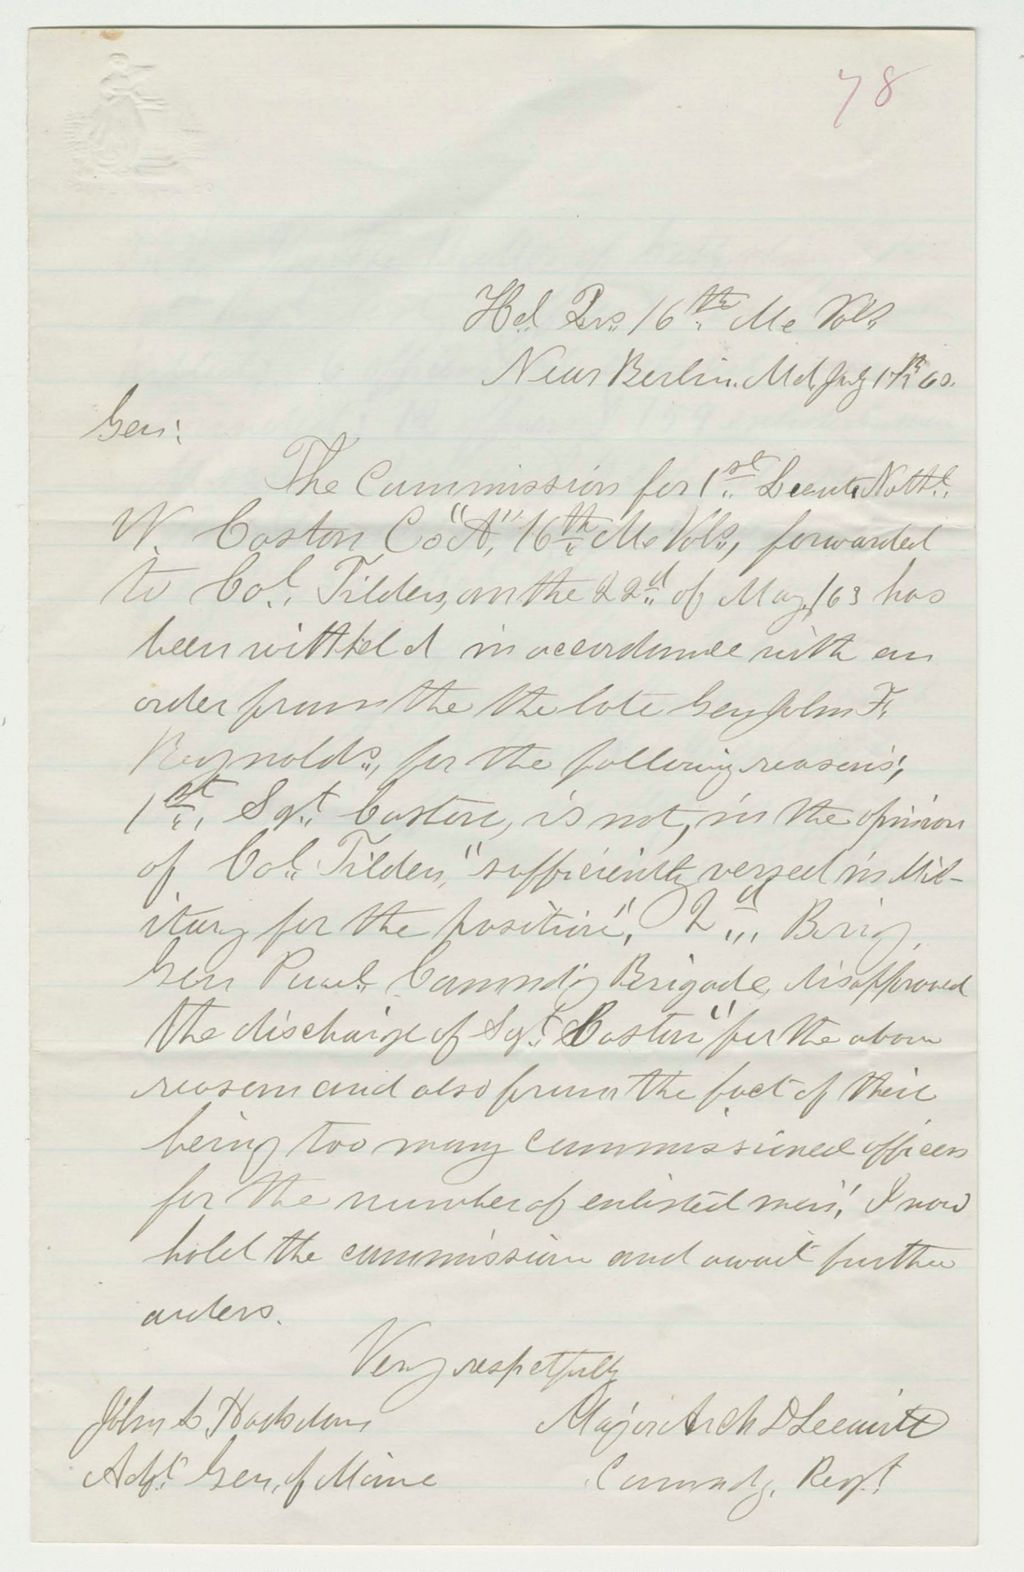 78
Hd. Qrs. 16th Me Vols.
Near Berlin. Md. July 17th 63.
Gen:
The Commission for 1st Lieut. Nathl.
W. Coston Co "A", 16th Me Vols, forwarded
to Col. Tilden, on the 22d of May, /63 has
been withheld in accordance with an
order from the the late Gen John F.
Reynolds, for the following reasons;
1st, Sgt. Coston, is not, in the opinion
of Col. Tilden, "sufficiently versed in Mil-
itary for the position", 2d, Brig,
Gen Paul Commdg Brigade, disapproved
the discharge of Sgt. Coston "for the above
reason and also from the fact of their
being too many commissioned officers
for the number of enlisted men". I now
hold the commission and await further
orders.
Very respetfully
John L Hodsdon
Major Arch D Leavitt
Adjt. Gen. of Maine
Commdg. Regt.